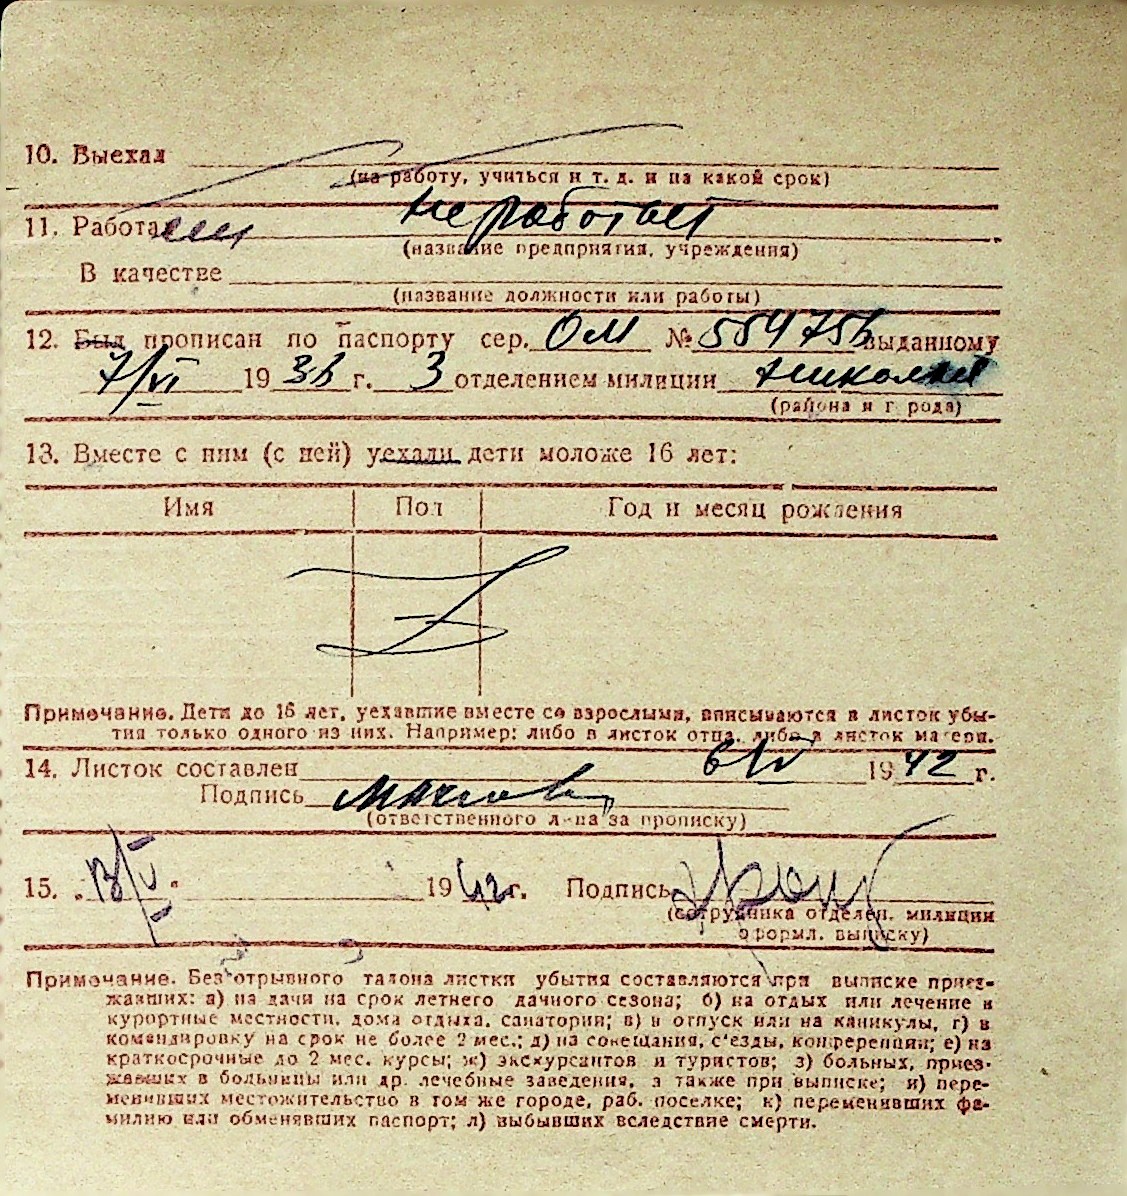 10. Выехал
(на работу, учиться и т. д. и на какой срок)
11. Работает не работает
(название предприятия, учреждения)
В качестве
(название должности или работы)
12. Был прописан по паспорту сер. ОМ № 554756 выданному
7/VI 1936 г. 3 отделением милиции
(района и города)
13. Вместе с ним (с ней) уехали дети моложе 16 лет:
Имя Пол Год и месяц рождения
Примечание. Дети до 16 лет, уехавшие вместе со взрослыми, вписываются в листок убы-
тия только одного из них. Например: либо в листок отца, либо в листок матери.
14. Листок составлен 6/V 1942 г.
Подпись
(ответственного лица за прописку)
15. „13/V“ 1942 г. Подпись
(сотрудника отделен. милиции
оформл. выписку)
Примечание. Без отрывного талона листки убытия составляются при выписке приез-
жавших: а) на дачи на срок летнего дачного сезона; б) на отдых или лечение в
курортные местности, дома отдыха, санатории; в) в отпуск или на каникулы, г) в
командировку на срок не более 2 мес.; д) на совещания, с'езды, конференции; е) на
краткосрочные до 2 мес. курсы; ж) экскурсантов и туристов; з) больных, приез-
жавших в больницы или др. лечебные заведения, а также при выписке; и) пере-
менивших местожительство в том же городе, раб. поселке; к) переменивших фа-
милию или обменявших паспорт; л) выбывших вследствие смерти.